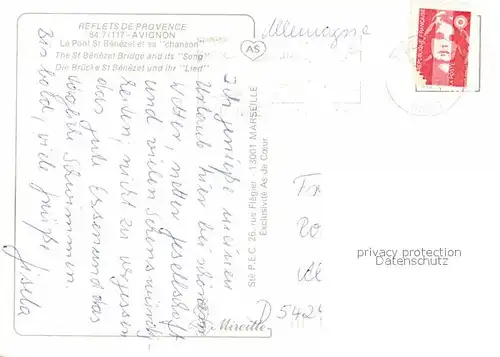 REFLETS DE PROVENCE
84.7/117 - AVIGNON
Le Pont St Bénézet et sa "chanson"
The St Bénézet Bridge and its "Song"
Die Brücke St Bénézet und ihr "Lied"
Ich genieße meinen
Urlaub hier bei schönem
Wetter, netter Gesellschaft
und vielen Sehenswürdig-
keiten, nicht zu vergessen
das gute Essen und das
tägliche Schwimmen.
Bis bald, viele Grüße
Gisela
AS
Sté P.E.C. 26, rue Flégier - 13001 MARSEILLE
Exclusivité As de Cœur.
Mireille
Allemagne
REPUBLIQUE FRANÇAISE
LA POSTE
D 5424
privacy protection
Datenschutz